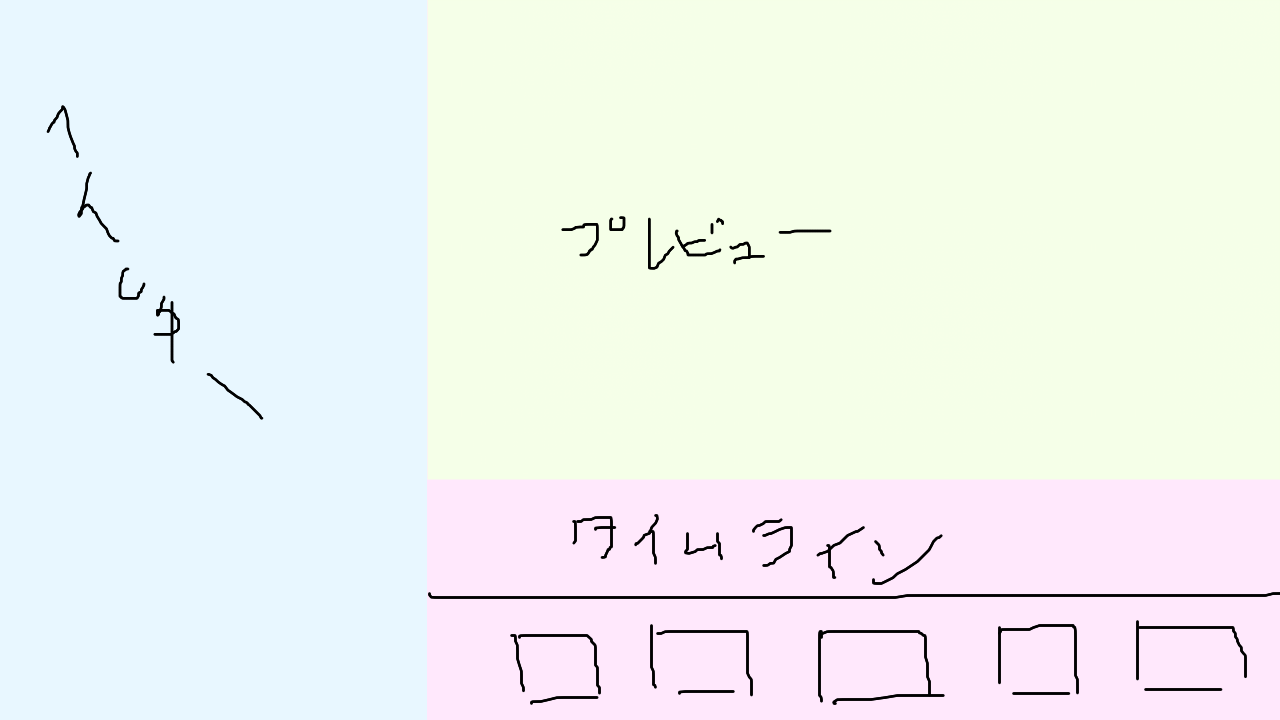 へんしゅー
プレビュー
タイムライン